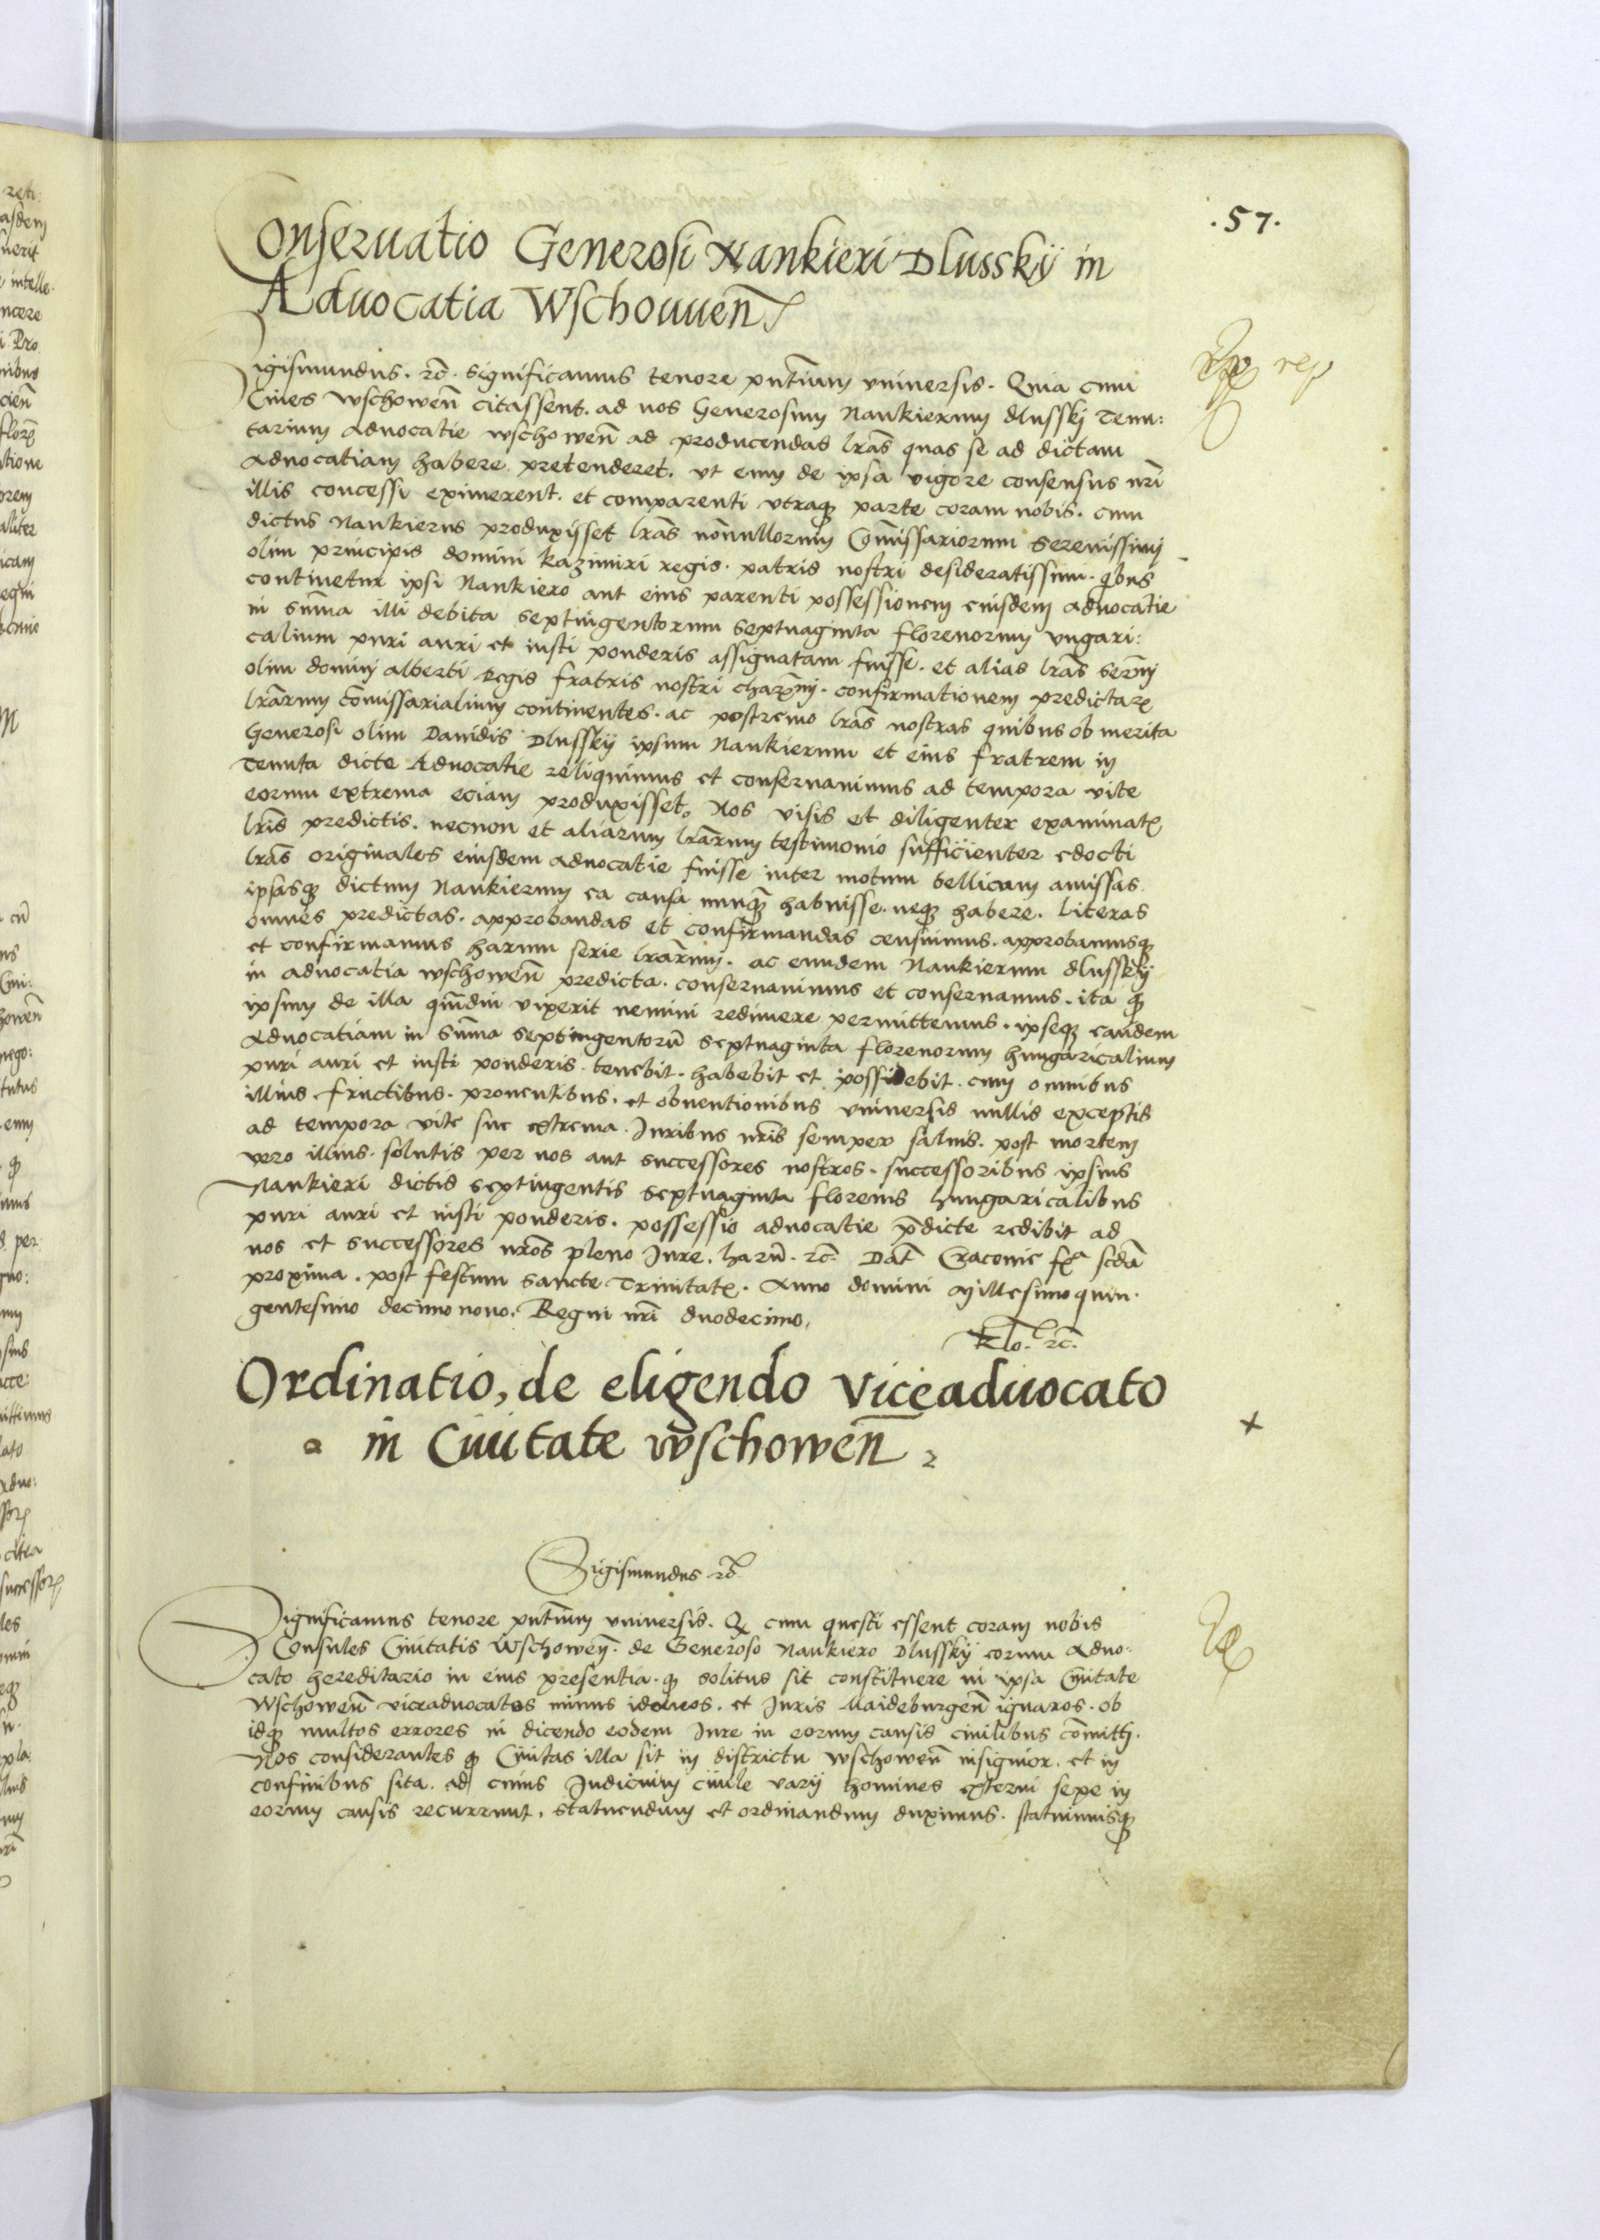 .57.
Conseruatio Generosi Nankieri Dlusskÿ in
Aduocatia Wschouuen̄
Sigismundus. rc̄. Significamus tenore pn̄tium vniuersis. Quia cum
Ciues Wschowen̄ citassent. ad nos Generosum Nankierum dlusskj Tenu:
tarium Aduocatie wschowen̄ ad producendas lr̄as quas se ad dictam
Aduocatiam habere pretenderet. vt eum de ipsa vigore consensus nr̄i
illis concessi eximerent. et comparenti vtraqꝫ parte coram nobis. cum
dictus Nankierus produxijset lr̄as nōnullorum Com̄issariorum Serenissimi
olim principis domini Kazimiri regis. patris nostri desideratissimi. qibus
continetur ipsi Nankiero aut eius parenti possessionem eiusdem aduocatie
in sum̄a illi debita septingentorum septuaginta florenorum vngari:
calium puri auri et iusti ponderis assignatam fuisse. et alias lr̄as Serm̄i
olim domini alberti Regis fratris nostri charm̄i. confirmationem predictarꝫ
lr̄arum com̄issarialium continentes. ac postremo lr̄as nostras quibus ob merita
Generosi olim Dauidis Dlusskÿ ipsum Nankierum et eius fratrem in
Tenuta dicte Aduocatie reliquimus et conseruauimus ad tempora vite
eorum extrema eciam produxisset. Nos visis et diligenter examinatꝫ
lr̄is predictis. necnon et aliarum lr̄arum testimonio sufficienter edocti
lr̄as originales eiusdem aduocatie fuisse inter motum bellicum amissas
ipsasqꝫ dictum Nankierum ea causa nunqꝫ habuisse. neqꝫ habere. Literas
omnes predictas. approbandas et confirmandas censuimus. approbamusqꝫ
et confirmamus harum serie lr̄arum. ac eundem Nankierum dlusskÿ
in aduocatia wschowen̄ predicta. conseruauimus et conseruamus. ita qꝫ
ipsum de illa qm̄diu vixerit nemini redimere permittemus. ipseqꝫ eandem
Aduocatiam in sum̄a septingentorū septuaginta florenorum hungaricalium
puri auri et iusti ponderis. tenebit. habebit et possidebit. cum omnibus
illius fructibus. prouentibus. et obuentionibus vniuersis nullis exceptis
ad tempora vite sue extrema. Iuribus nr̄is semper saluis. post mortem
vero illius. solutis per nos aut successores nostros. successoribus ipsius
Nankieri dictis septingentis septuaginta florenis hungaricalibus
puri auri et iusti ponderis. possessio aduocatie p̄dicte redibit ad
nos et successores nr̄os pleno Iure. harū. rc̄. Dat̄ Cracouie fꝫa scd̄a
proxima. post festum Sancte Trinitatꝫ. Anno domini Millesimo quin.
gentesimo decimo nono. Regni nr̄i duodecimo.
Ordinatio, de eligendo viceaduocato
in Ciuitate wschowen̄
Sigismundus rc̄
Significamus tenore pn̄tium vniuersis. Qꝫ cum questi essent coram nobis
Consules Ciuitatis Wschowen̄. de Generoso Nankiero Dlusskÿ eorum Aduo:
cato hereditario in eius presentia. qꝫ solitus sit constituere in ipsa Ciuitate
Wschowen̄ viceaduocatos minus idoneos. et Iuris Maideburgen̄ ignaros. ob
idqꝫ multos errores in dicendo eodem Iure in eorum causis ciuilibus com̄itti.
Nos considerantes qꝫ Ciuitas illa sit in districtu wschowen̄ insignior. et in
confinibus sita. ad cuius Iudicium ciuile varij homines externi sepe in
eorum causis recurrunt. statuendum et ordinandum duximus. statuimusqꝫ